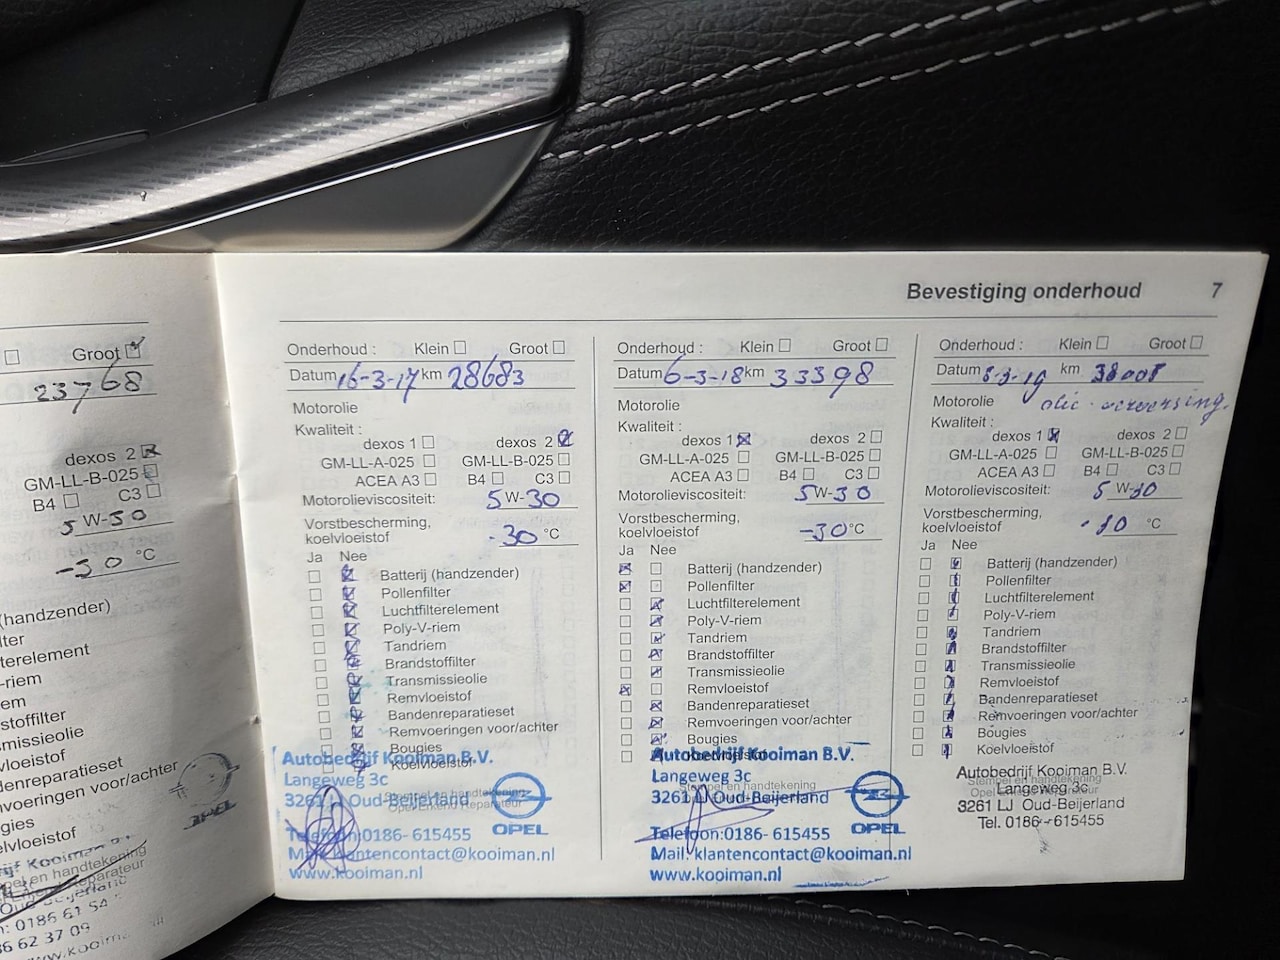 Groot
23768
dexos 2
GM-LL-B-025
B4 C3
5 W-30
-30 °C
(handzender)
lter
terelement
-riem
em
stoffilter
smissieolie
vloeistof
denreparatieset
nvoeringen voor/achter
gies
elvloeistof
jf Kooiman B.V.
pel en handtekening
Erkend Reparateur
Oud-Beijerland
n: 0186 61 54
86 62 37 09
www.kooiman
OPEL
Bevestiging onderhoud 7
Onderhoud : Klein Groot
Datum 16-3-17 km 28683
Motorolie
Kwaliteit :
dexos 1 dexos 2
GM-LL-A-025 GM-LL-B-025
ACEA A3 B4 C3
Motorolieviscositeit: 5 W-30
Vorstbescherming,
koelvloeistof -30 °C
Ja Nee
Batterij (handzender)
Pollenfilter
Luchtfilterelement
Poly-V-riem
Tandriem
Brandstoffilter
Transmissieolie
Remvloeistof
Bandenreparatieset
Remvoeringen voor/achter
Bougies
Koelvloeistof
Autobedrijf Kooiman B.V.
Langeweg 3c
Stempel en handtekening
3261 LJ Oud-Beijerland
Opel Erkend Reparateur
OPEL
Telefoon:0186- 615455
Mail: klantencontact@kooiman.nl
www.kooiman.nl
Onderhoud : Klein Groot
Datum 6-3-18 km 33398
Motorolie
Kwaliteit :
dexos 1 dexos 2
GM-LL-A-025 GM-LL-B-025
ACEA A3 B4 C3
Motorolieviscositeit: 5W-30
Vorstbescherming,
koelvloeistof -30°C
Ja Nee
Batterij (handzender)
Pollenfilter
Luchtfilterelement
Poly-V-riem
Tandriem
Brandstoffilter
Transmissieolie
Remvloeistof
Bandenreparatieset
Remvoeringen voor/achter
Bougies
Koelvloeistof
Autobedrijf Kooiman B.V.
Langeweg 3c
Stempel en handtekening
3261 LJ Oud-Beijerland
OPEL
Telefoon:0186- 615455
Mail: klantencontact@kooiman.nl
www.kooiman.nl
Onderhoud : Klein Groot
Datum 8-3-19 km 38008
Motorolie olie-verversing.
Kwaliteit :
dexos 1 dexos 2
GM-LL-A-025 GM-LL-B-025
ACEA A3 B4 C3
Motorolieviscositeit: 5 W-30
Vorstbescherming,
koelvloeistof -30 °C
Ja Nee
Batterij (handzender)
Pollenfilter
Luchtfilterelement
Poly-V-riem
Tandriem
Brandstoffilter
Transmissieolie
Remvloeistof
Bandenreparatieset
Remvoeringen voor/achter
Bougies
Koelvloeistof
Autobedrijf Kooiman B.V.
Stempel en handtekening
Langeweg 3c
Opel Erkend Reparateur
3261 LJ Oud-Beijerland
Tel. 0186-615455